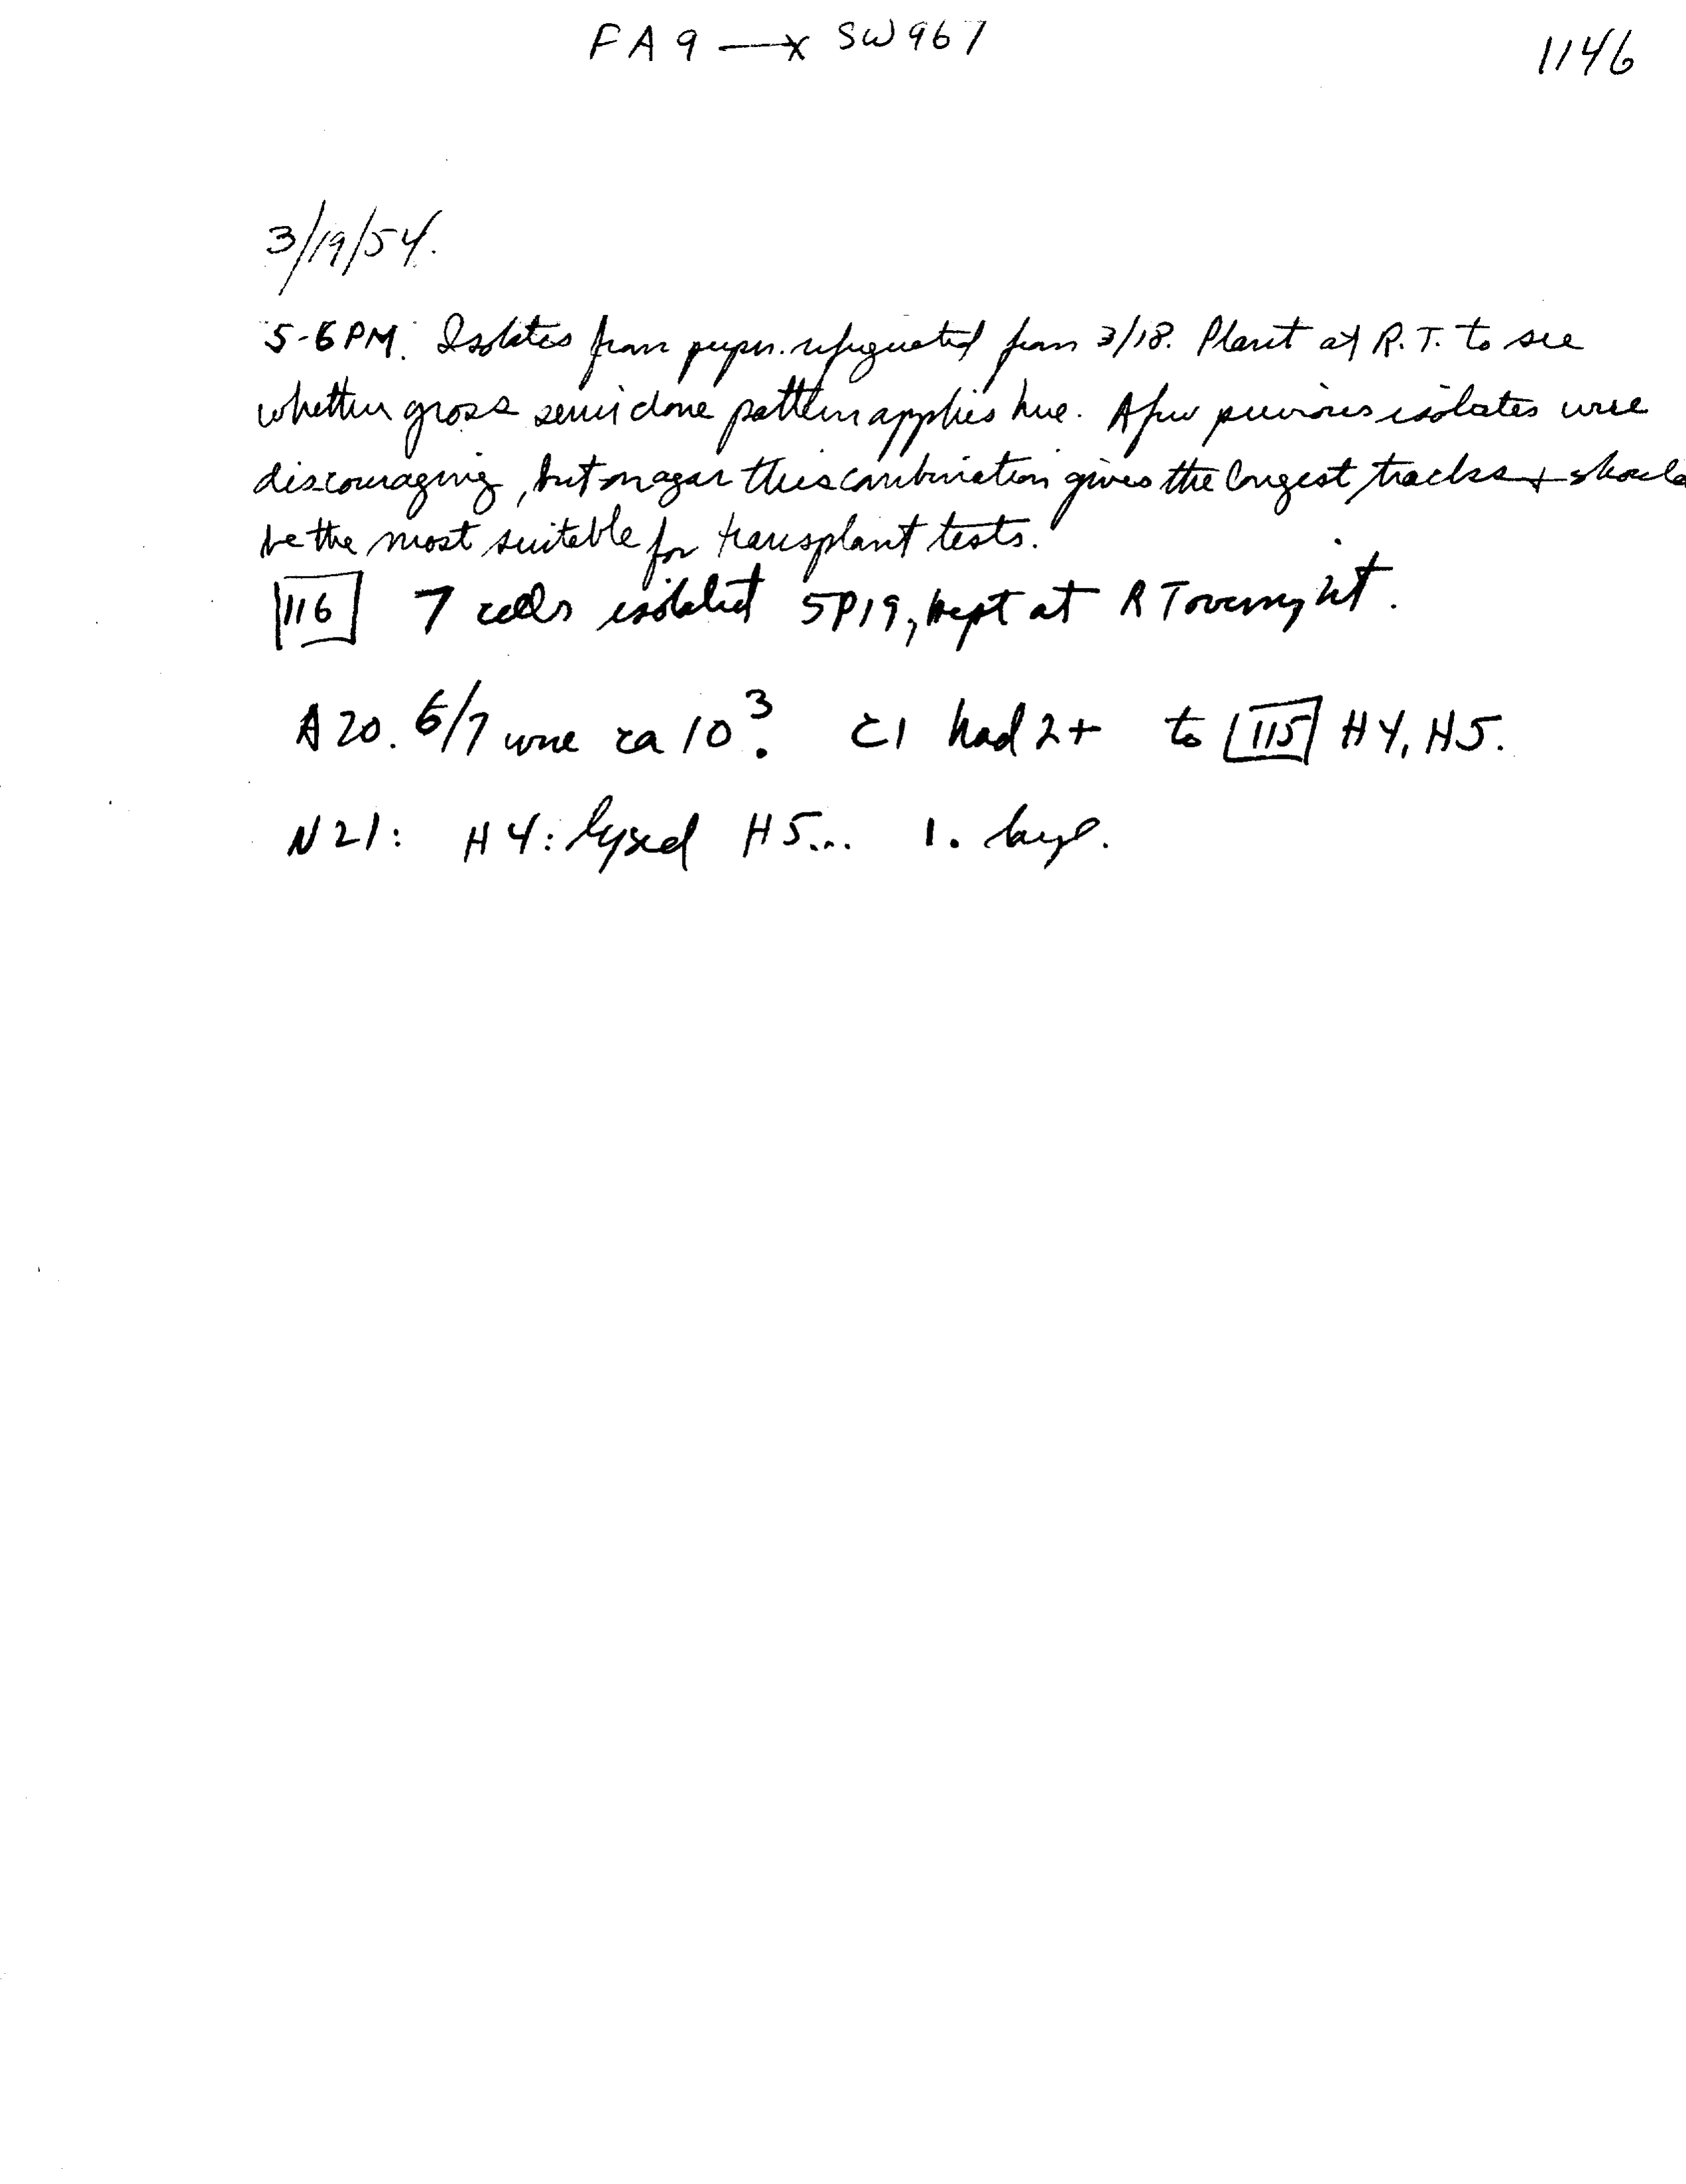 FA9 —x SW967
1146
3/19/54.
5-6PM. Isolates from prepn. refrigerated from 3/18. Plant at R.T. to see
whether gross semiclone pattern applies here. A few previous isolates were
discouraging, but on agar this combination gives the longest tracks + should
be the most suitable for transplant tests.
116 7 cells isolated 5P19, kept at RT overnight.
A20. 6/7 were ca 10³. C1 had 2+ to 115 H4, H5.
N21: H4: lysed H5... 1.